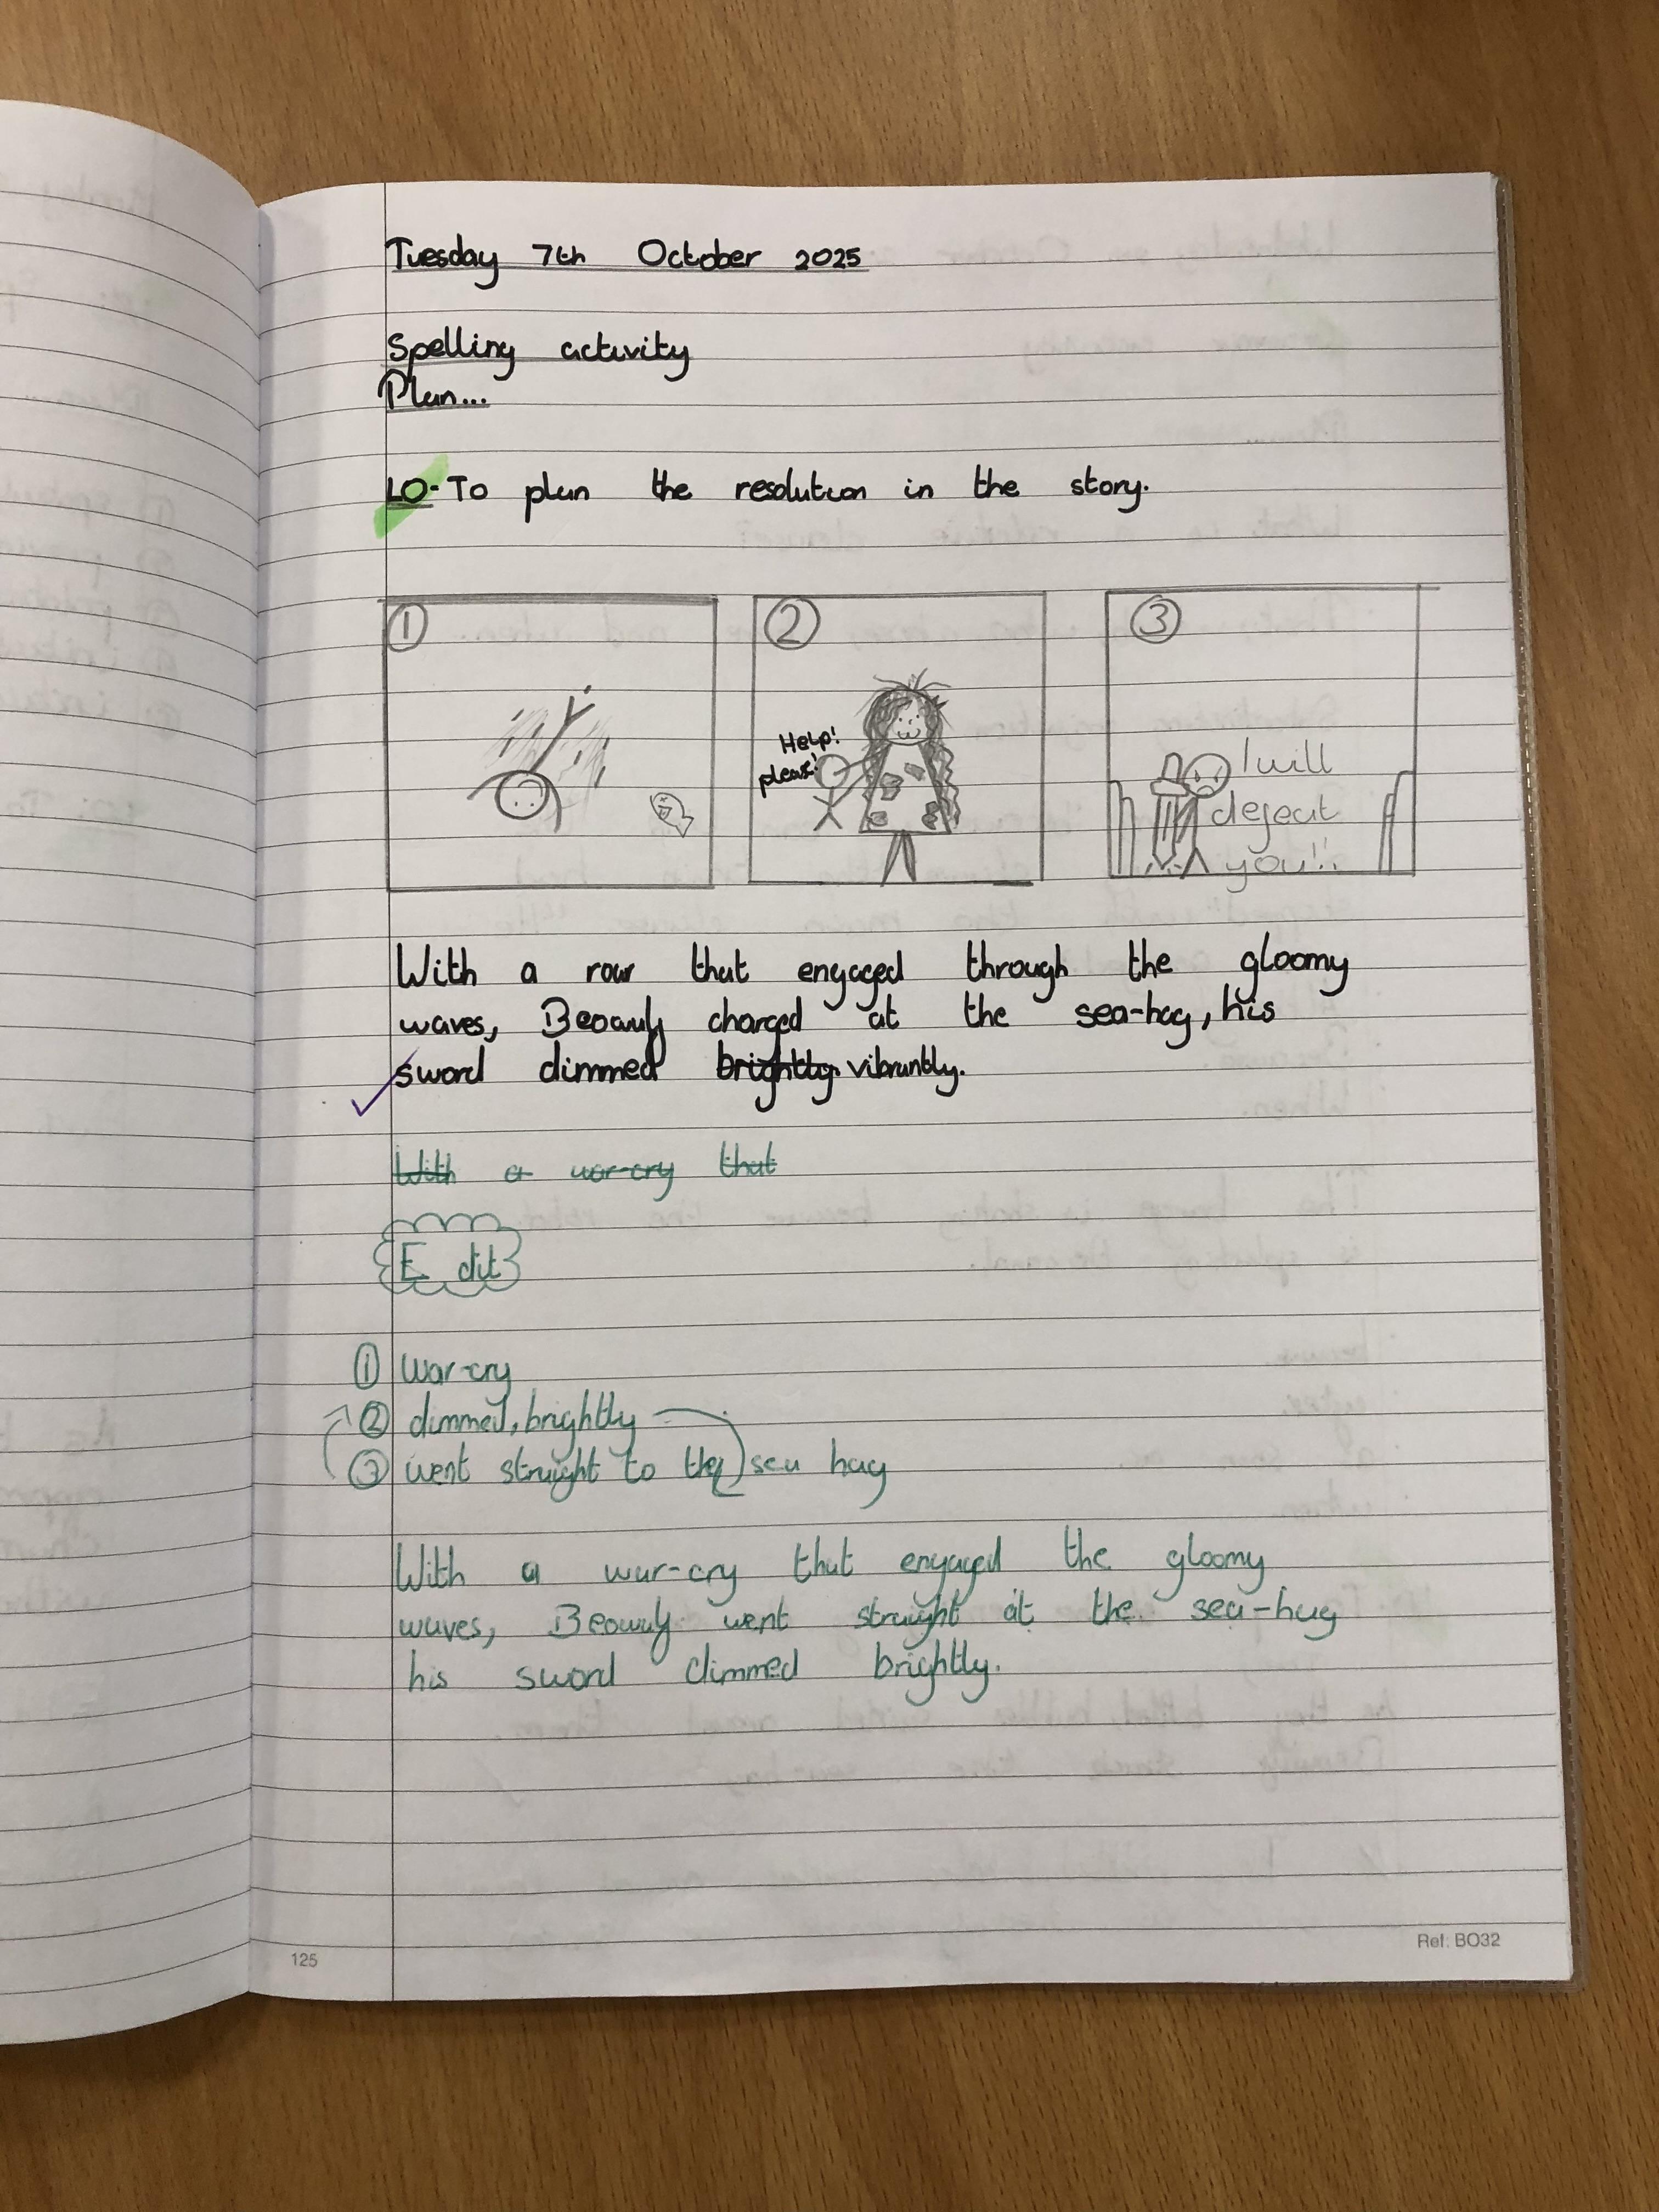 Tuesday 7th October 2025
Spelling activity
Plan...
LO- To plan the resolution in the story.
1
2
3
Help!
please!
I will
defeat
you!!
With a roar that engaged through the gloomy
waves, Beowulf charged at the sea-hag, his
sword dimmed brightly. vibrantly.
With a war-cry that
Edit
1 war-cry
2 dimmed, brightly
3 went straight to the sea hag
With a war-cry that engaged the gloomy
waves, Beowulf went straight at the sea-hag
his sword dimmed brightly.
125
Ref: BO32